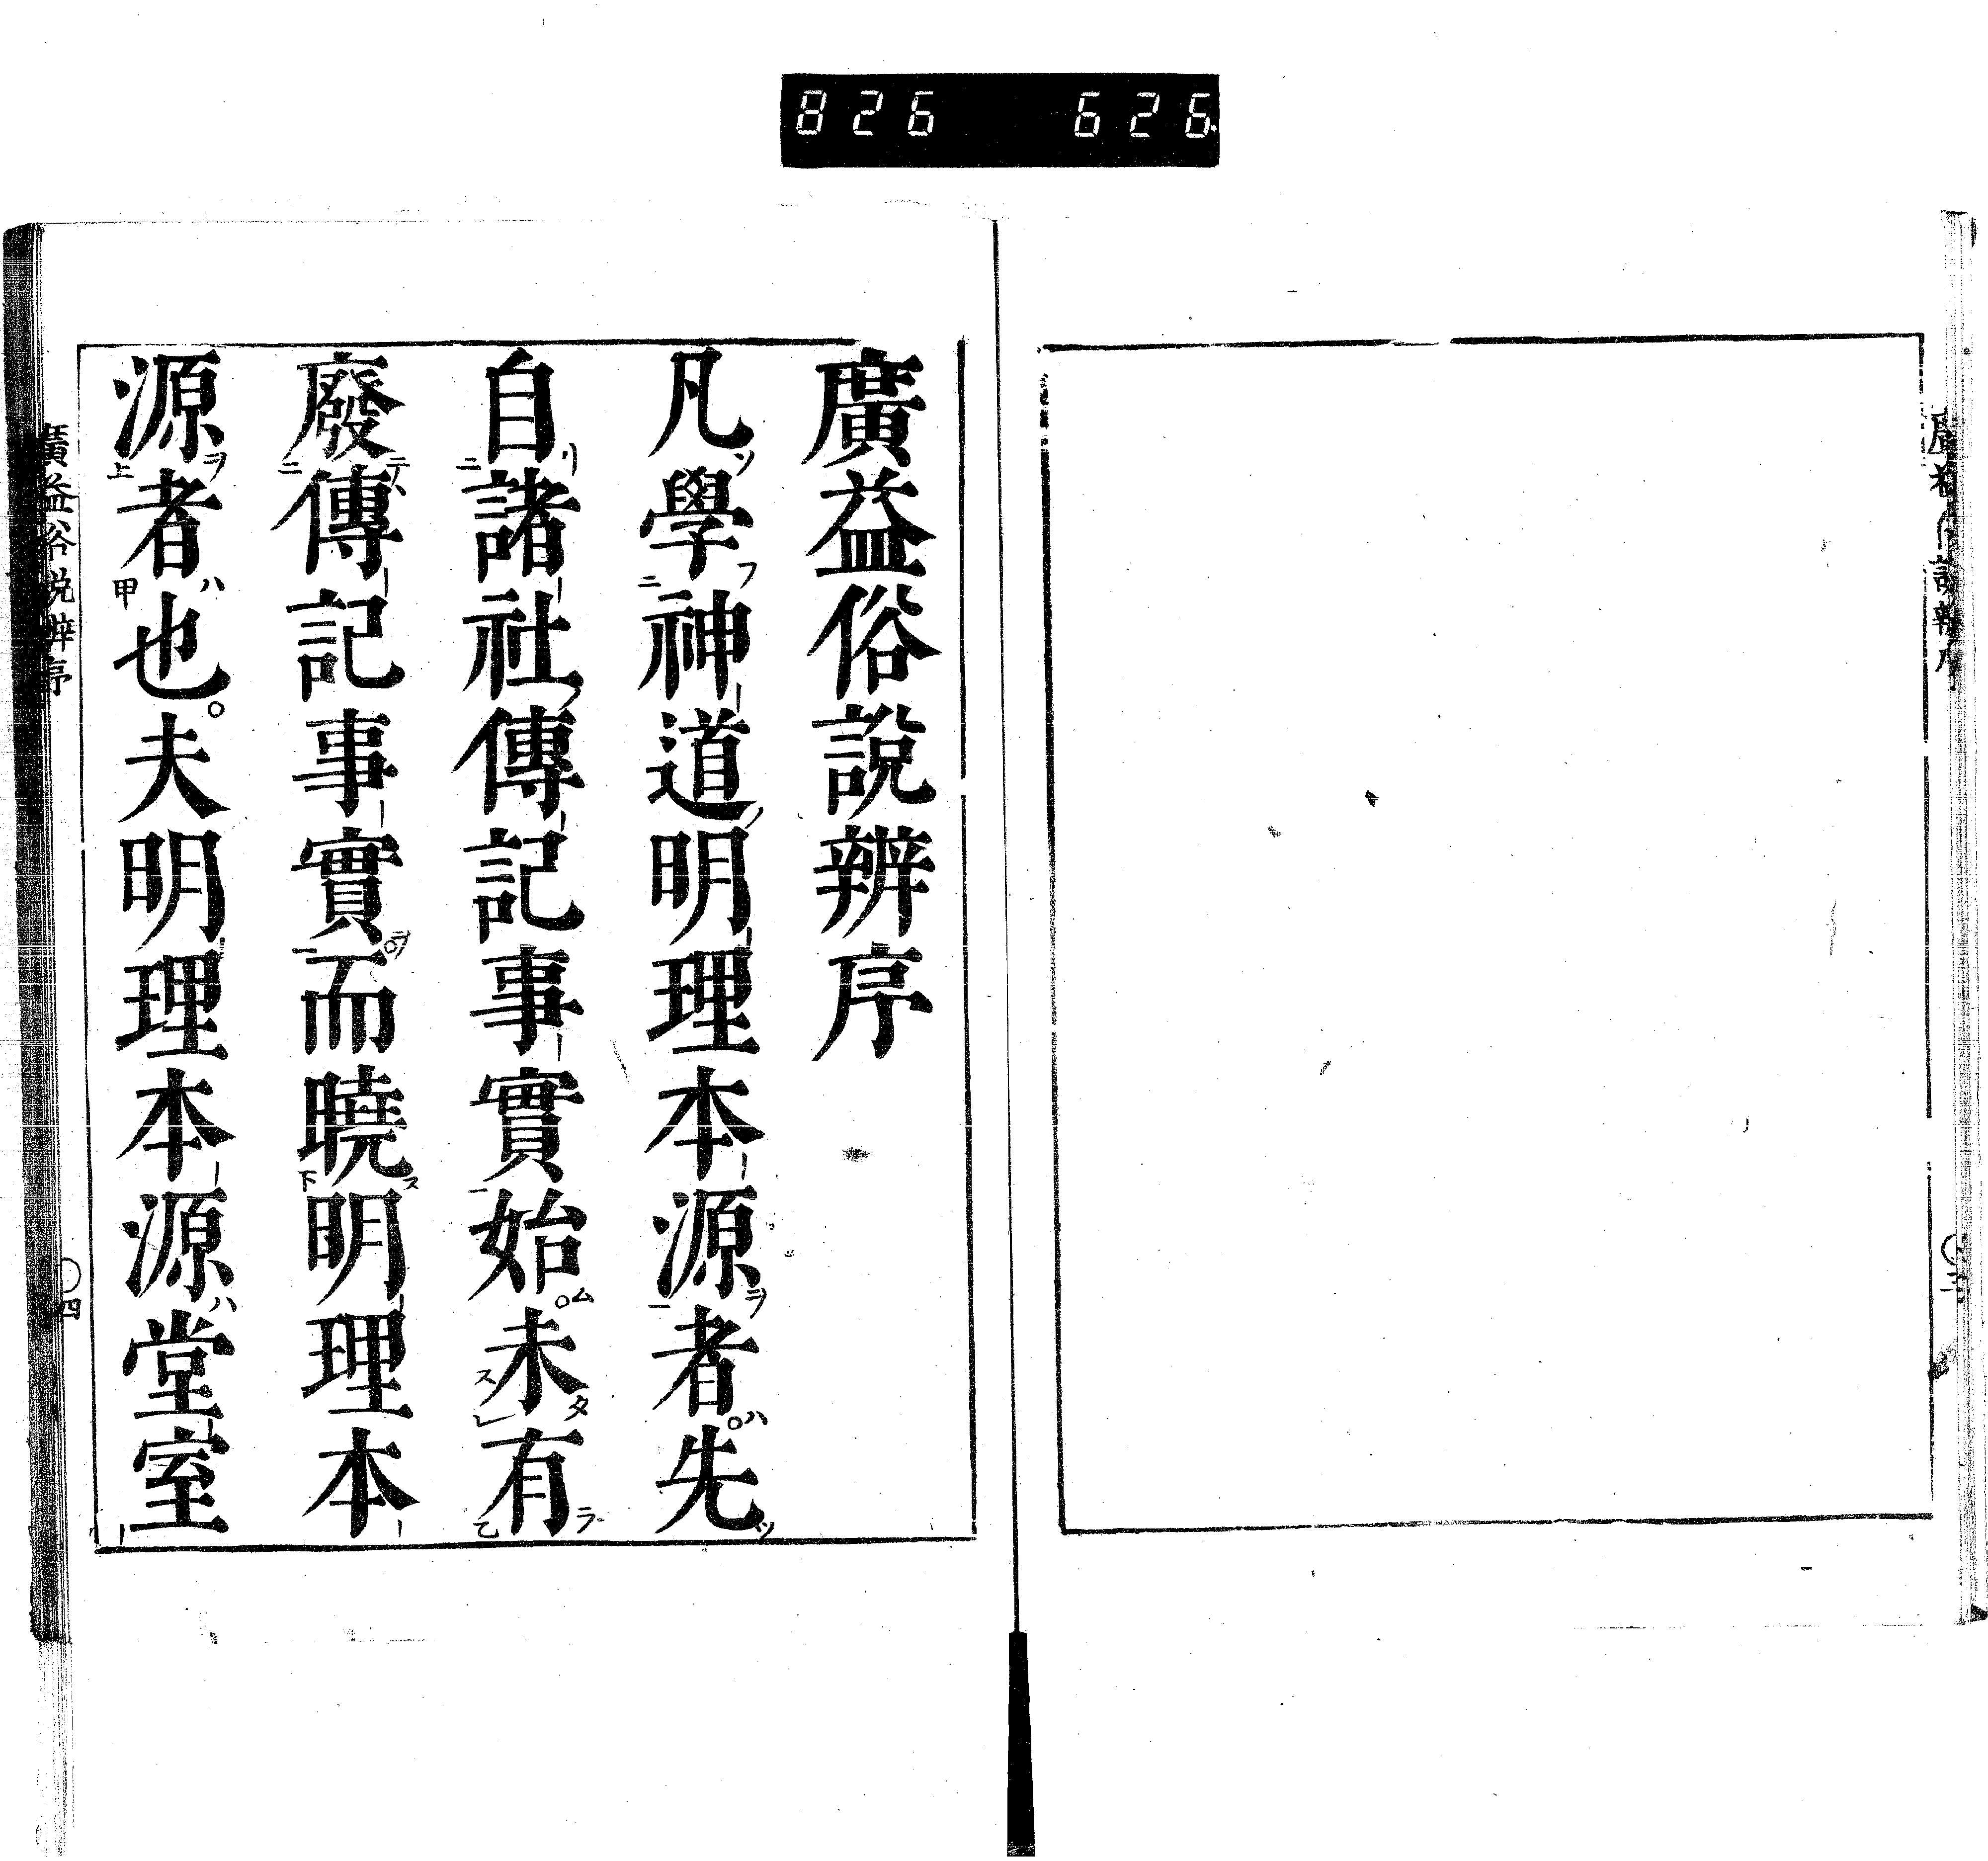 826 626
廣益俗說辨序
凡學神道明理本源者先
自諸社傳記事實始未有
廢傳記事實而曉明理本
源者也。夫明理本源堂室
廣益俗説辨序
〇四